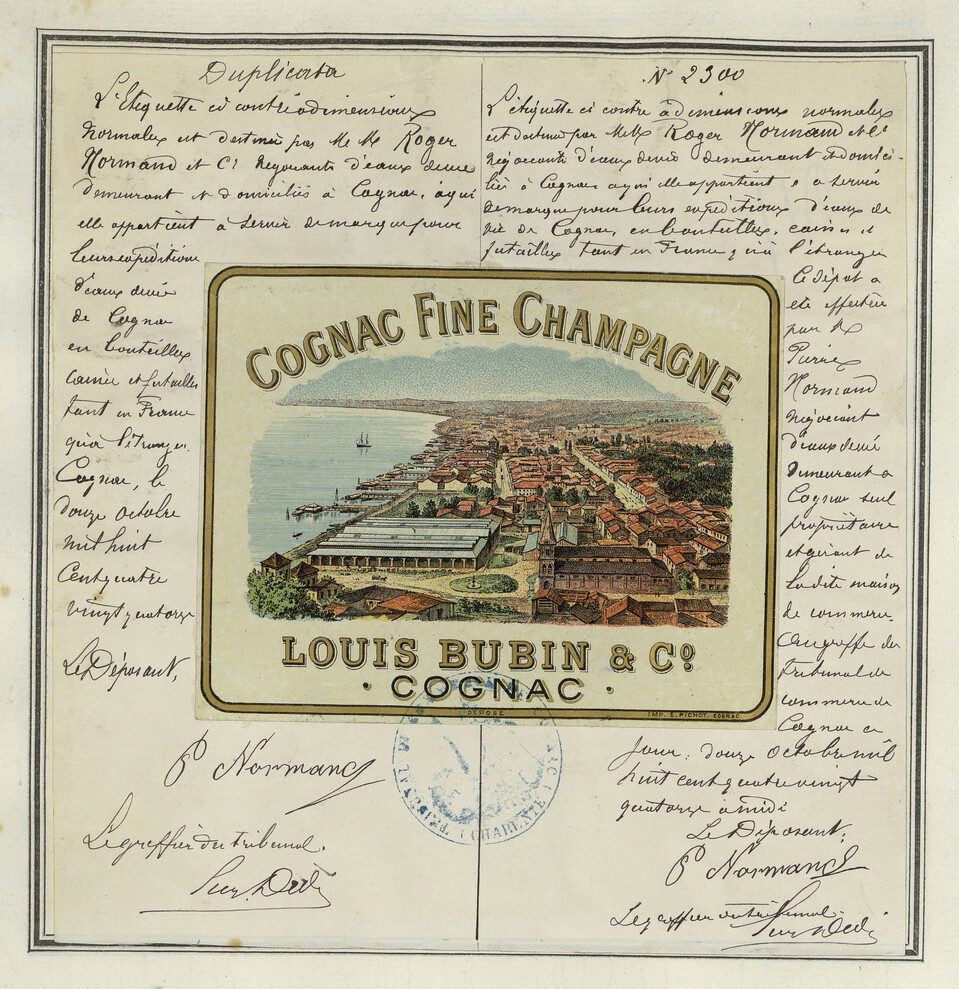 Duplicata
L'Etiquette ci contre a dimensions
normales est destinée par MM Roger
Normand et Cie Négociants d'eaux de vie
demeurant et domiciliés à Cognac, à qui
elle appartient à servir de marque pour
leurs expéditions
d'eaux de vie
de Cognac
en bouteilles
caisses et futailles
tant en France
qu'à l'étranger.
Cognac, le
douze Octobre
mil huit
cent quatre
vingt quatorze
Le Déposant,
P Normand
Le greffier du tribunal.
No 2300
L'étiquette ci contre a dimensions normales
est destinée par MM Roger Normand et Cie
négociants d'eaux de vie demeurant et domici-
liés à Cognac à qui elle appartient à servir
de marque pour leurs expéditions d'eaux de
vie de Cognac, en bouteilles, caisses et
futailles tant en France qu'à l'étranger
Le dépôt a
été effectué
par M
Pierre
Normand
négociant
d'eaux de vie
demeurant à
Cognac seul
propriétaire
et gérant de
la dite maison
de commerce.
Au greffe du
tribunal de
commerce de
Cognac ce
jour, douze Octobre mil
huit cent quatre vingt
quatorze à midi
Le Déposant,
P Normand
Le greffier du tribunal.
COGNAC FINE CHAMPAGNE
LOUIS BUBIN & Co
· COGNAC ·
DÉPOSÉ
IMP. E. PICHOT. COGNAC
(CHARENTE)